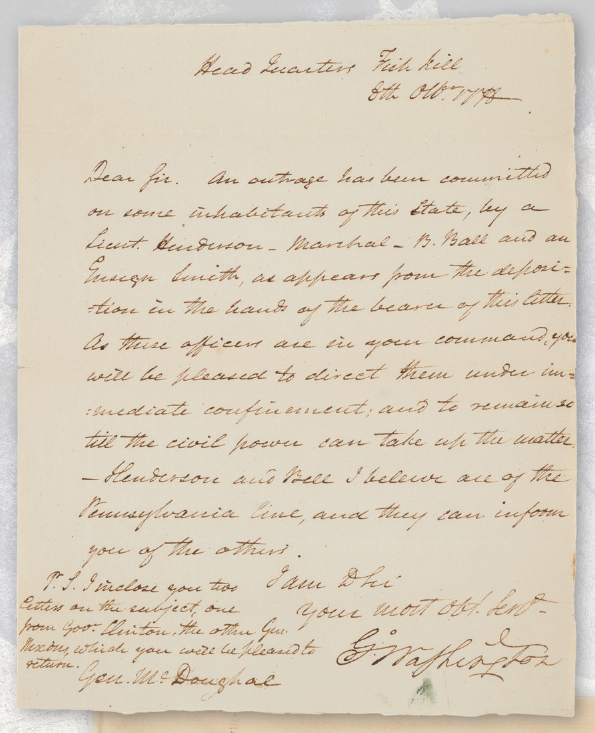 Head Quarters Fish kill
8th Octbr 1778
Dear Sir. An outrage has been committed
on some inhabitants of this State, by a
Lieut. Henderson – Marshal – B. Ball and an
Ensign Smith, as appears from the deposi-
-tion in the hands of the bearer of this letter.
As these officers are in your command, you
will be pleased to direct them under im=
:mediate confinement; and to remain so
till the civil power can take up the matter.
– Henderson and Bell I beleive are of the
Pennsylvania line, and they can inform
you of the others.
I am D Sir
your most Obt. Servt.
Go Washington
P. S. I inclose you two
letters on the subject, one
from Govr. Clinton, the other Gen.
which you will be pleased to
return.
Gen. Mc Doughal